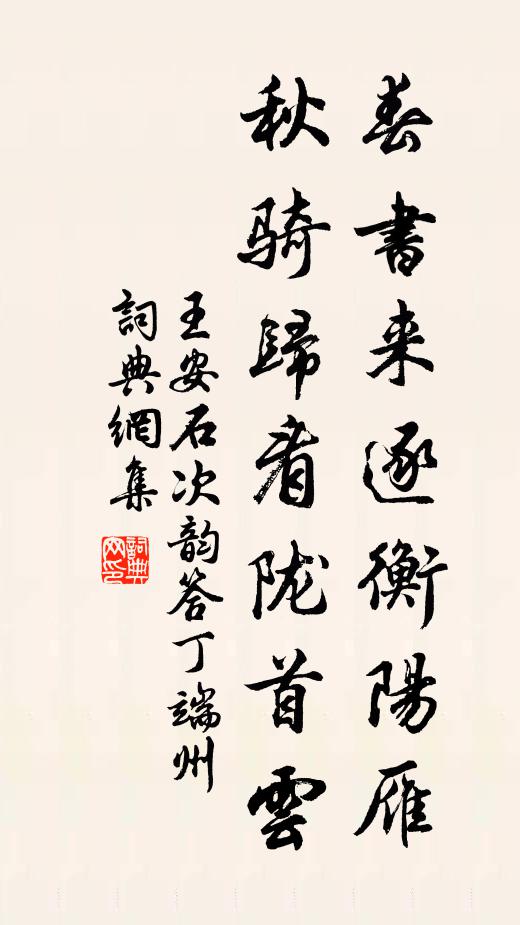 春書来逐衡陽雁
秋騎歸看陇首雲
王安石次韵答丁端州
詞典網集
詞典网印